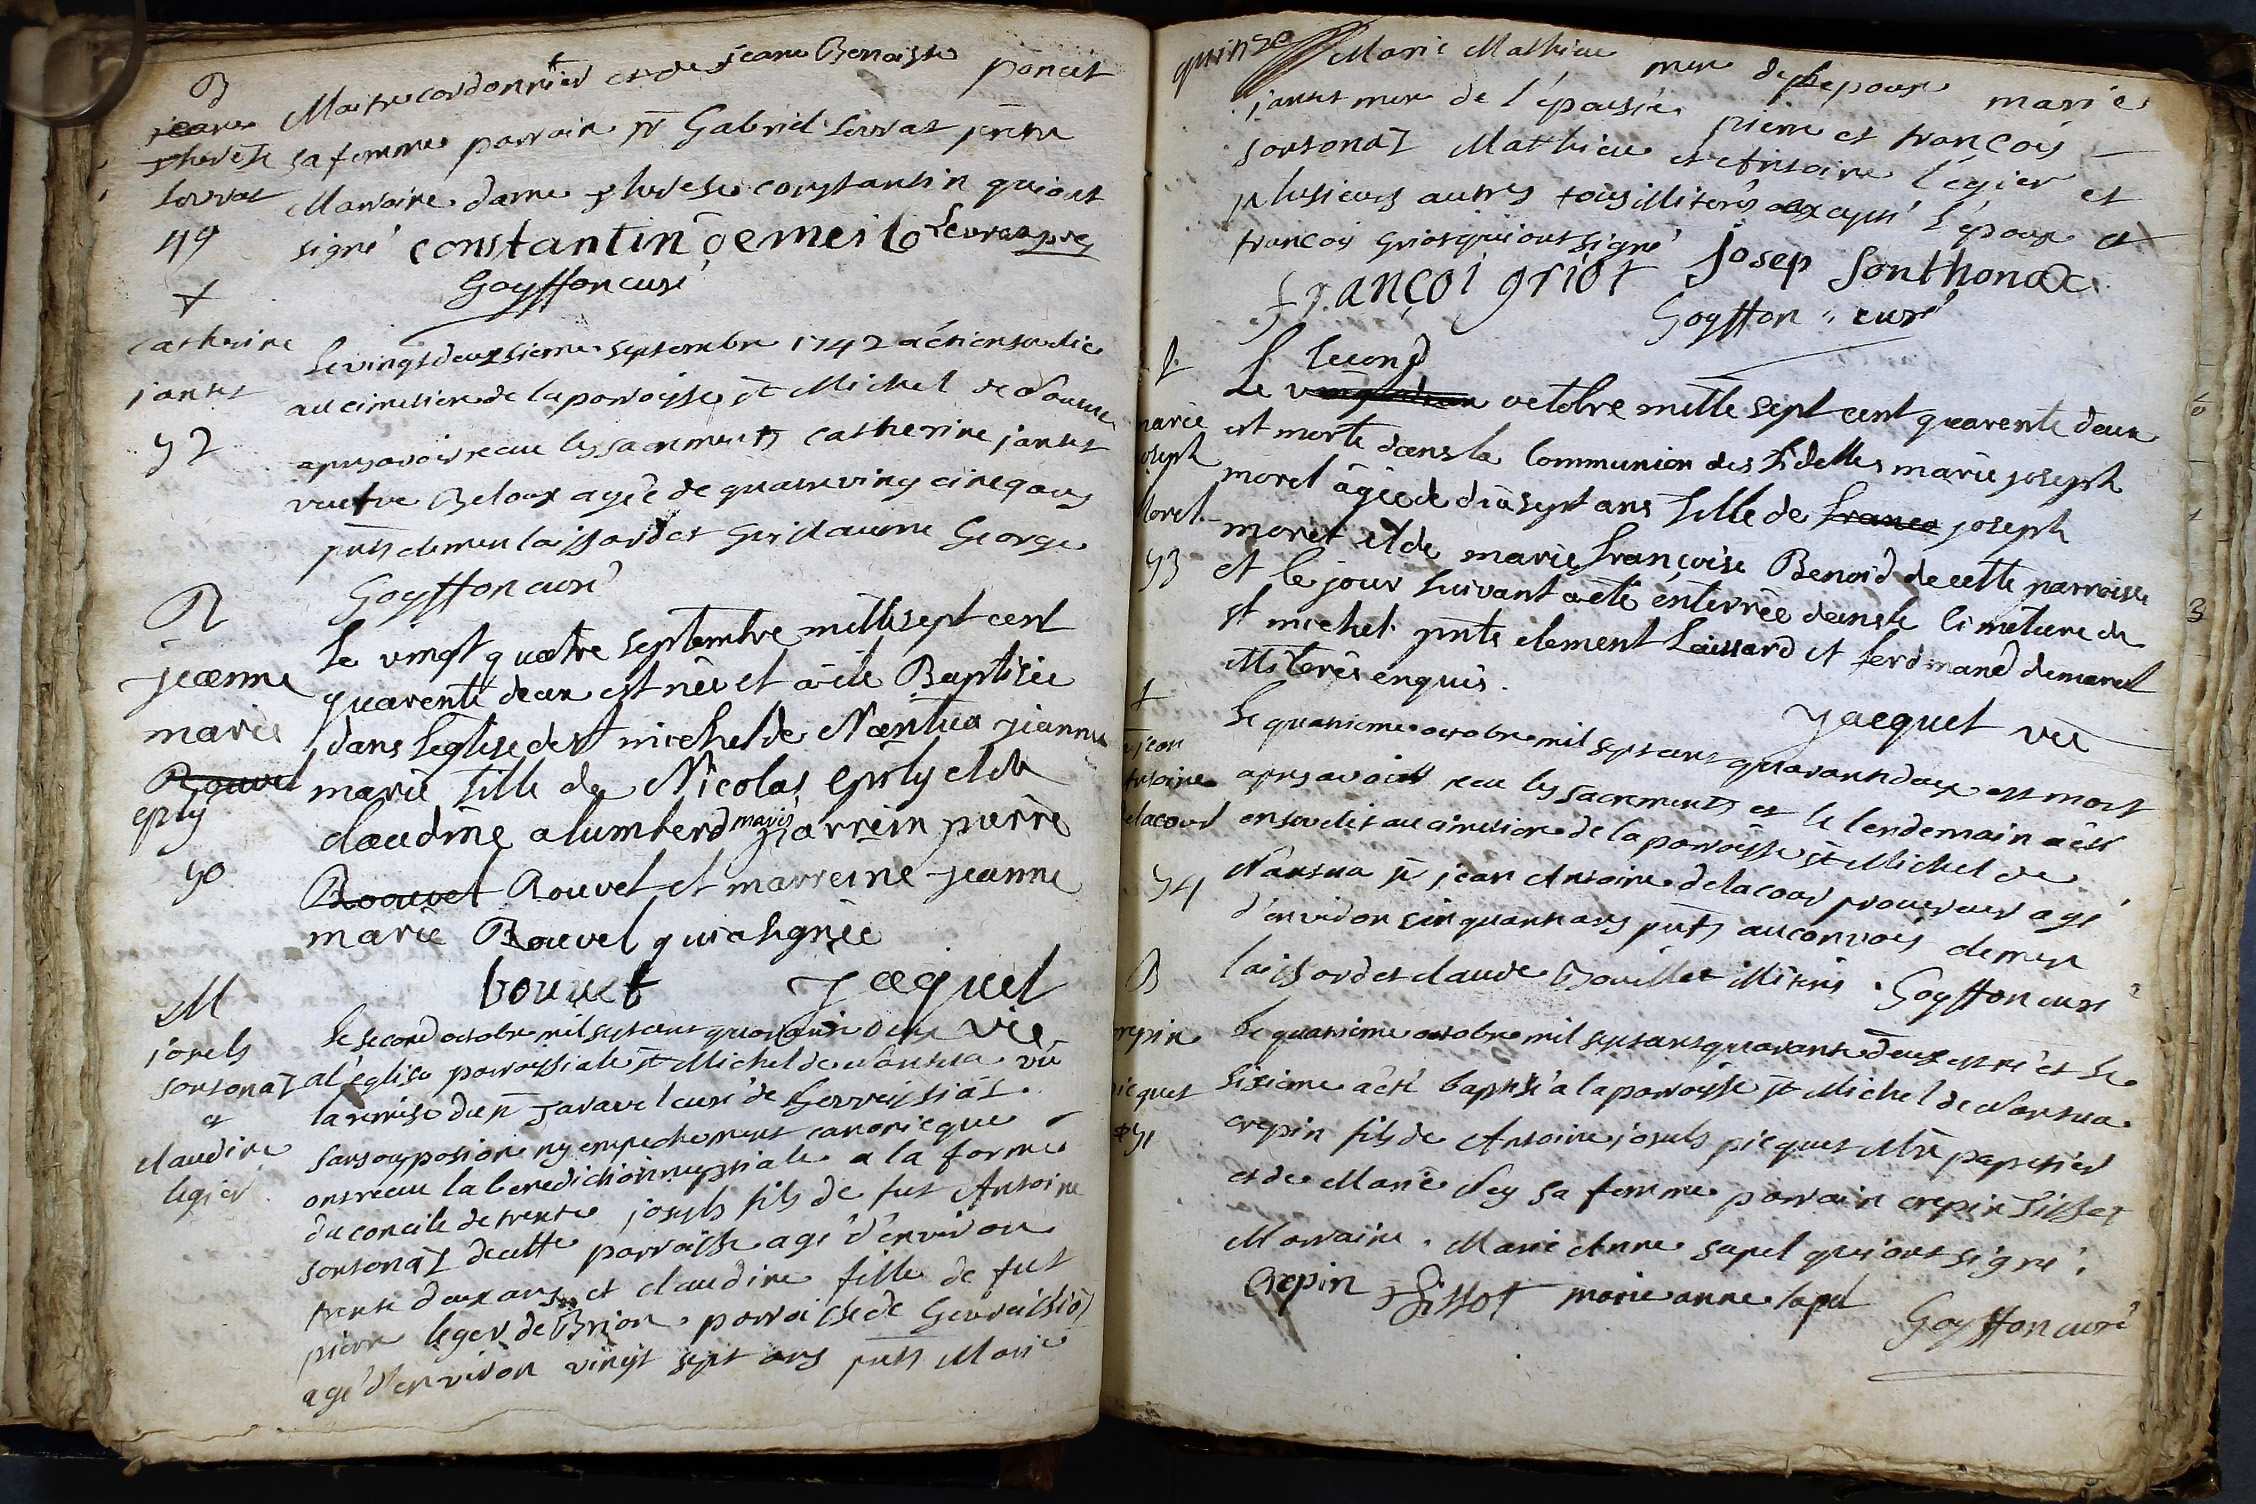 B
jeane
therese
Levrat
49
Maitre cordonnier et de jeane Benoiste poncet
sa femme parrain sr Gabriel Levrat prêtre
Marraine dame therese constantin qui ont
signé constantin demeilo Levrat pre
Goyffon curé
+
catherine
jantet
52
Le vingt deuxsieme septembre 1742 a été ensevelie
au cimetiere de la parroisse st Michel de Nantua
apres avoir receu les sacrements catherine jantet
veufve Beloux agée de quatre vingt cinq ans
pnts clement laissard et Guillaume George
Goyffon curé
B
jeanne
marie
Rouvel
eply
50
Le vingt quatre septembre mille sept cent
quarente deux est née et a été Baptisée
dans l'eglise de st michel de Nantua jeanne
marie fille de Nicolas eply et de
claudine alumberd mariés parrein pierre
Rouvel Rouvel et marreine jeanne
marie Rouvel qui a signée
bouvet Jacquet
vic
M
joseph
sontonaz
et
claudine
legier
Le second octobre mil sept cent quarante deux
a l'église parroissiale st Michel de Nantua vû
la remise du sr Javavel curé de Gevreissiat
sans opposition ny empechement canonicque
ont receu la benediction nuptiale a la forme
du concile de trente joseph fils de fut Antoine
sontonaz de cette parroisse agé d'environ
trente deux ans et claudine fille de fut
pierre leger de Brion parroisse de Gevreissiat
agé d'environ vingt sept ans pnts Marie
quinze
Marie Mathieu mere de l'epoux marie
jantet mere de l'épouse pierre et francois
sontonaz Mathieu et Antoine légier et
plusieurs autres tous illiterés excepté l'époux et
francois griot qui ont signé
françoi griot josep sonthonax
Goyffon curé
+
marie
joseph
Morel
53
second
Le vingt deux octobre mille sept cent quarente deux
est morte dans la Communion des fidelles marie joseph
morel âgée de dix sept ans fille de franco joseph
morel et de marie françoise Benoid de cette parroisse
et le jour suivant a été enterrée dans le cimetiere de
st michel pnts clement Laissard et ferdinand demaret
illiterés enquis.
Jacquet vic
+
jean
Antoine
delacour
54
Le quatrieme octobre mil sept cent quarante deux est mort
apres avoir receu les sacrements et le lendemain a été
ensevelit au cimetiere de la parroisse st Michel de
Nantua sr jean Antoine delacour procureur agé
d'environ cinquante ans pnts au convois clement
laissard et claude Bouillet illiterés Goyffon curé
B
crepin
picquet
51
Le quatrieme octobre mil sept cent quarante deux est né et le
sixieme a été baptisé a la parroisse st Michel de Nantua
crepin fils de Antoine joseph picquet Mtre papetier
et de Marie Ney sa femme parrain crepin sisset
Marraine Marie Anne sapel qui ont signé
Crepin Sissot marie anne sapel
Goyffon curé